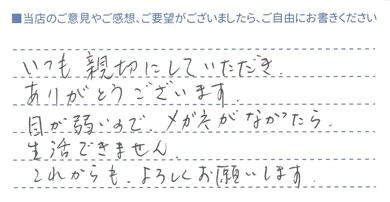 ■当店のご意見やご感想、ご要望がございましたら、ご自由にお書きください
いつも親切にしていただき
ありがとうございます。
目が弱いので、メガネがなかったら
生活できません。
これからも、よろしくお願いします。